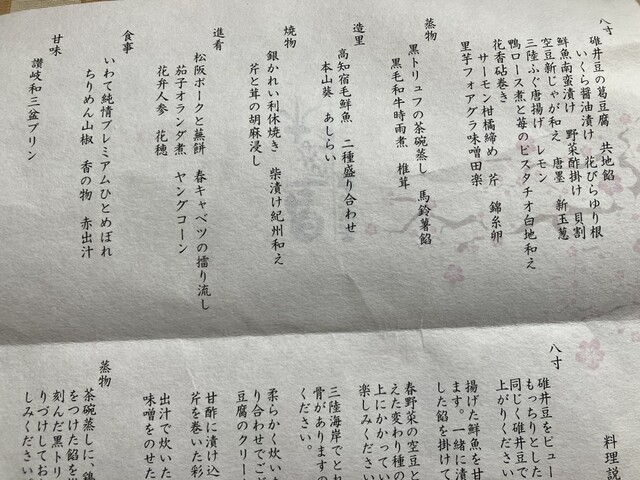 八寸
碓井豆の葛豆腐　共地餡
いくら醤油漬け　花びらゆり根
鮮魚南蛮漬け　野菜酢掛け　貝割
空豆新じゃが和え　唐墨　新玉葱
三陸ふぐ唐揚げ　レモン
鴨ロース煮と苺のピスタチオ白地和え
花香砧巻き
サーモン柑橘締め　芹　錦糸卵
里芋フォアグラ味噌田楽
蒸物
黒トリュフの茶碗蒸し　馬鈴薯餡
黒毛和牛時雨煮　椎茸
造里
高知宿毛鮮魚　二種盛り合わせ
本山葵　あしらい
焼物
銀かれい利休焼き　柴漬け紀州和え
芹と茸の胡麻浸し
進肴
松阪ポークと蕪餅　春キャベツの擂り流し
茄子オランダ煮　ヤングコーン
花弁人参　花穂
食事
いわて純情プレミアムひとめぼれ
ちりめん山椒　香の物　赤出汁
甘味
讃岐和三盆プリン
料理説
八寸
碓井豆をピュー
もっちりとした
同じく碓井豆で
上がりください
揚げた鮮魚を甘
ます。一緒に漬
した餡を掛けて
春野菜の空豆と
えた変わり種の
上にかかってい
楽しみください
三陸海岸でとれ
骨がありますの
ください。
柔らかく炊いた
り合わせでござ
豆腐のクリーム
甘酢に漬け込
芹を巻いた彩
出汁で炊いた
味噌をのせた
蒸物
茶碗蒸しに、鶏
をつけた餡を
刻んだ黒トリ
りづけしてお
しみください